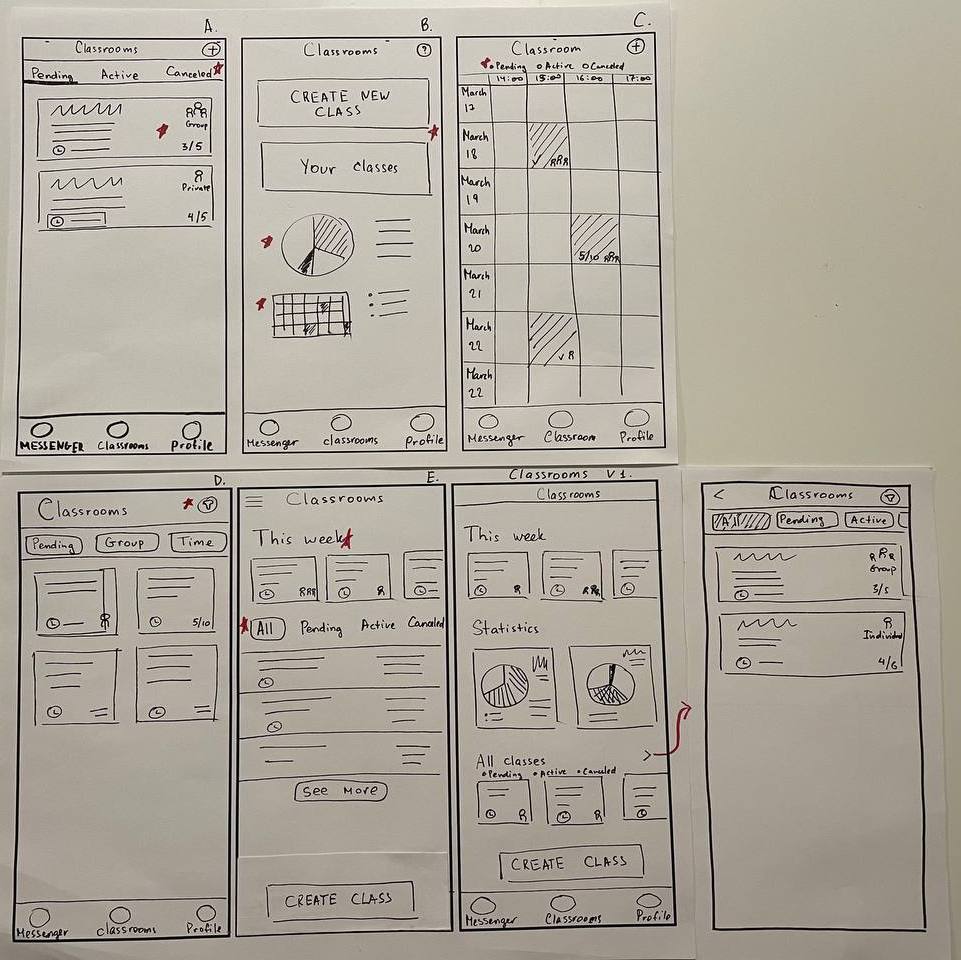 A.
Classrooms +
Pending Active Canceled
Group
3/5
Private
4/5
MESSENGER Classrooms Profile
B.
Classrooms ?
CREATE NEW
CLASS
Your classes
Messenger classrooms Profile
C.
Classroom +
Pending Active Canceled
14:00 15:00 16:00 17:00
March
17
March
18
March
19
March
20
5/10
March
21
March
22
March
22
Messenger Classroom Profile
D.
Classrooms
Pending Group Time
5/10
Messenger classrooms Profile
E.
Classrooms
This week
All Pending Active Canceled
See More
CREATE CLASS
Classrooms V1.
Classrooms
This week
Statistics
All classes >
Pending Active Canceled
CREATE CLASS
Messenger Classrooms Profile
< Classrooms
All Pending Active
Group
3/5
Individual
4/6